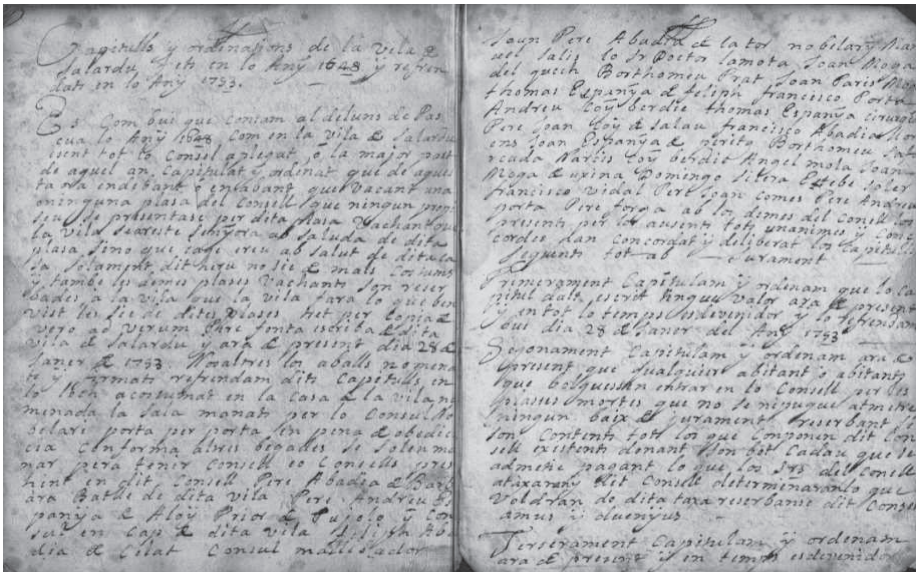 Capitulls y ordenasions de la Vila de
Salardu, fets en lo Any 1648 y refren
dats en lo Any 1733.
Es Com bui que contam al deluns de Pas
cua lo Any 1648 com en la vila de Salardu
isent tot lo Consel aplegat o la major part
de aquel an Capitulat y ordenat que de aques
ta ora endebant o enabant que vacant una
o ninguna plasa del Consell que ningun
se presentase per dita plasa Vachant que
la vila seareste senyora ab saluda de dita
plasa sino que lo ereu ab salut de dita ca
sa solament dit hereu no sie de mals Costums
y tambe les demes plases Vachants son reser
bades a la vila que la vila fara lo que ben
vist les sie de dites plases tret per Copia de
vero ad verum Pere Fonta escriba de dita
vila de Salardu y ara de present dia 28 de
Janer de 1733 Nosaltres los aballs nomena
ts y firmats refrendam dits Capitulls en
lo Libre acostumat en la Casa de la vila no
menada la Sala manats per lo Consul No
belari porta per porta en pena de obedien
cia conforma altres begades se solen ma
nar pera tener Consell o Consells pres
hent en dit Consell Pere Abadia de
ara Batlle de dita vila Pere Andreu Es
panya de Aloy Prior de Pujolo y Con
sul en Cap de dita vila Filip Aba
dia de Cilat Consul
Joan Pere Abadia de la tor nobelary
uel Salis lo Sr Doctor lamota Joan Moga
del quech Borthomeu Prat Joan Paris
thomas Espanya de feliph francisco Porta
Andreu Coy berdie thomas Espanya cirurgia
Pere Joan Coy de Salau francisco Abadia
ens Joan Espanya de perito Borthomeu
rcada Narcis Coy berdit Angel mola Joan
Moga de uxina Domingo Sitera Estebe Soler
francisco Vidal Pere Joan Comes Pere Andreu
porta Pere forga ab los demes del Consell los
presents per los ausents tots unanimes y Con
cordes dan Concordat y deliberat los Capitulls
seguents tot ab jurament
Primerament Capitulam y ordenam que lo Ca
pitul dalt escrit tingue valor ara de present
y en tot lo temps esdevenidor y lo refrendam
bui dia 28 de Janer del Any 1733
Segonament Capitulam y ordenam ara de
present que qualquier abitant o abitants
que bolguessen entrar en lo Consell per les
plasses mortes que no se ni pugue atmetre
ningun baix de jurament reserbant si
son Contents tots los que componen dit Con
sell existents donant son bot Cadau que se
admetie pagant lo que los Srs del Consell
ataxaran y dit Consell determinaran lo que
Voldran de dita taxa reserbanse dit Consell
amus y duenyus
Terserament Capitulam y ordenam
ara de present y en temps esdevenidor